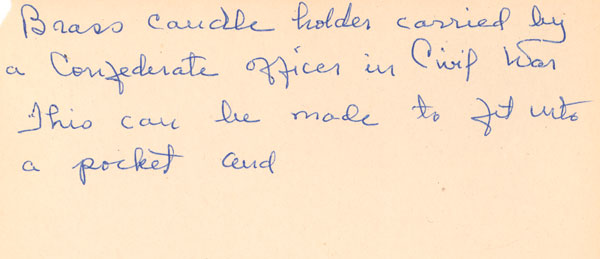 Brass candle holder carried by
a Confederate officer in Civil War
This can be made to fit into
a pocket and